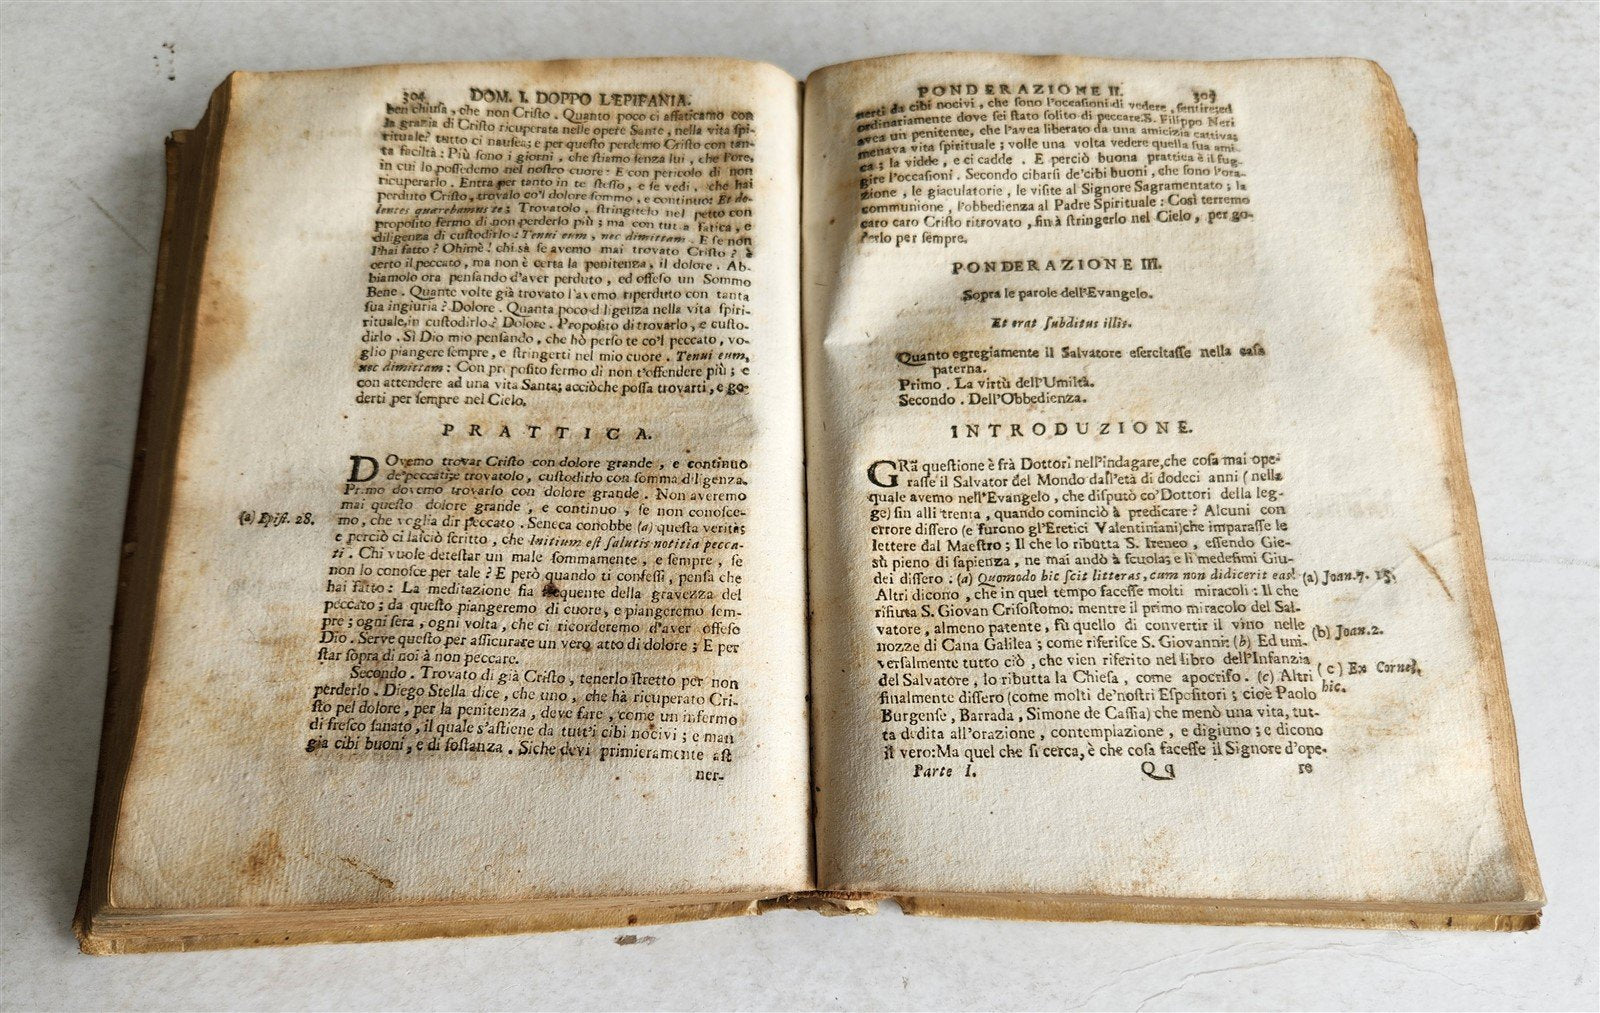 304 DOM. I. DOPPO L'EPIFANIA.
ben chiusa, che non Cristo. Quanto poco ci affaticamo con
la grazia di Cristo ricuperata nelle opere Sante, nella vita spi-
rituale? tutto ci nausea; e per questo perdemo Cristo con tan-
ta faciltà: Più sono i giorni, che stiamo senza lui, che l'ore,
in cui lo possedemo nel nostro cuore: E con pericolo di non
ricuperarlo. Entra per tanto in te stesso, e se vedi, che hai
perduto Cristo, trovalo co'l dolore sommo, e continuo: Et do-
lentes quærebamus te; Trovatolo, stringitelo nel petto con
proposito fermo di non perderlo più; ma con tutta fatica, e
diligenza di custodirlo: Tenui eum, nec dimittam. E se non
l'hai fatto? Ohimè! chi sà se avemo mai trovato Cristo? è
certo il peccato, ma non è certa la penitenza, il dolore. Ab-
biamolo ora pensando d'aver perduto, ed offeso un Sommo
Bene. Quante volte già trovato l'avemo riperduto con tanta
sua ingiuria? Dolore. Quanta poco diligenza nella vita spiri-
rituale, in custodirlo? Dolore. Proposito di trovarlo, e custo-
dirlo. Sì Dio mio pensando, che hò perso te co'l peccato, vo-
glio piangere sempre, e stringerti nel mio cuore. Tenui eum,
nec dimittam: Con proposito fermo di non t'offendere più; e
con attendere ad una vita Santa; acciòche possa trovarti, e go-
derti per sempre nel Cielo.
PRATTICA.
DOvemo trovar Cristo con dolore grande, e continuo
de' peccati; e trovatolo, custodirlo con somma diligenza.
Primo dovemo trovarlo con dolore grande. Non averemo
mai questo dolore grande, e continuo, se non conosce-
(a) Epist. 28. mo, che veglia dir peccato. Seneca conobbe (a) questa verità;
e perciò ci lasciò scritto, che Initium est salutis notitia pecca-
ti. Chi vuole detestar un male sommamente, e sempre, se
non lo conosce per tale? E però quando ti confessi, pensa che
hai fatto: La meditazione sia frequente della gravezza del
peccato; da questo piangeremo di cuore, e piangeremo sem-
pre; ogni sera, ogni volta, che ci ricorderemo d'aver offeso
Dio. Serve questo per assicurare un vero atto di dolore; E per
star sopra di noi à non peccare.
Secondo. Trovato di già Cristo, tenerlo stretto per non
perderlo. Diego Stella dice, che uno, che hà ricuperato Cri-
sto pel dolore, per la penitenza, deve fare, come un infermo
di fresco sanato, il quale s'astiene da tutt'i cibi nocivi; e man
gia cibi buoni, e di sostanza. Siche devi primieramente ast
ner-
PONDERAZIONE II. 305
nerti da cibi nocivi, che sono l'occasioni di vedere, sentire; ed
ordinariamente dove sei stato solito di peccare. S. Filippo Neri
avea un penitente, che l'avea liberato da una amicizia cattiva;
menava vita spirituale; volle una volta vedere quella sua ami-
ca; la vidde, e ci cadde. E perciò buona prattica è il fug-
gire l'occasioni. Secondo cibarsi de'cibi buoni, che sono l'ora-
zione, le giaculatorie, le visite al Signore Sagramentato; la
communione, l'obbedienza al Padre Spirituale: Così terremo
caro caro Cristo ritrovato, sin à stringerlo nel Cielo, per go-
derlo per sempre.
PONDERAZIONE III.
Sopra le parole dell'Evangelo.
Et erat subditus illis.
Quanto egregiamente il Salvatore esercitasse nella casa
paterna.
Primo. La virtù dell'Umiltà.
Secondo. Dell'Obbedienza.
INTRODUZIONE.
GRã questione è frà Dottori nell'indagare, che cosa mai ope-
rasse il Salvator del Mondo dall'età di dodeci anni (nella
quale avemo nell'Evangelo, che disputò co'Dottori della leg-
ge) sin alli trenta, quando cominciò à predicare? Alcuni con
errore dissero (e furono gl'Eretici Valentiniani) che imparasse le
lettere dal Maestro; Il che lo ributta S. Ireneo, essendo Gie-
sù pieno di sapienza, ne mai andò à scuola; e li medesimi Giu-
dei dissero. (a) Quomodo hic scit litteras, cum non didicerit eas? (a) Joan. 7. 15.
Altri dicono, che in quel tempo facesse molti miracoli: Il che
rifiuta S. Giovan Crisostomo: mentre il primo miracolo del Sal-
vatore, almeno patente, fù quello di convertir il vino nelle
nozze di Cana Galilea; come riferisce S. Giovanni: (b) Ed uni- (b) Joan. 2.
versalmente tutto ciò, che vien riferito nel libro dell'Infanzia
del Salvatore, lo ributta la Chiesa, come apocrifo. (c) Altri (c) Ex Cornel.
finalmente dissero (come molti de'nostri Espositori; cioè Paolo hic.
Burgense, Barrada, Simone de Cassia) che menò una vita, tut-
ta dedita all'orazione, contemplazione, e digiuno; e dicono
il vero: Ma quel che si cerca, è che cosa facesse il Signore d'ope-
Parte I. Qq re